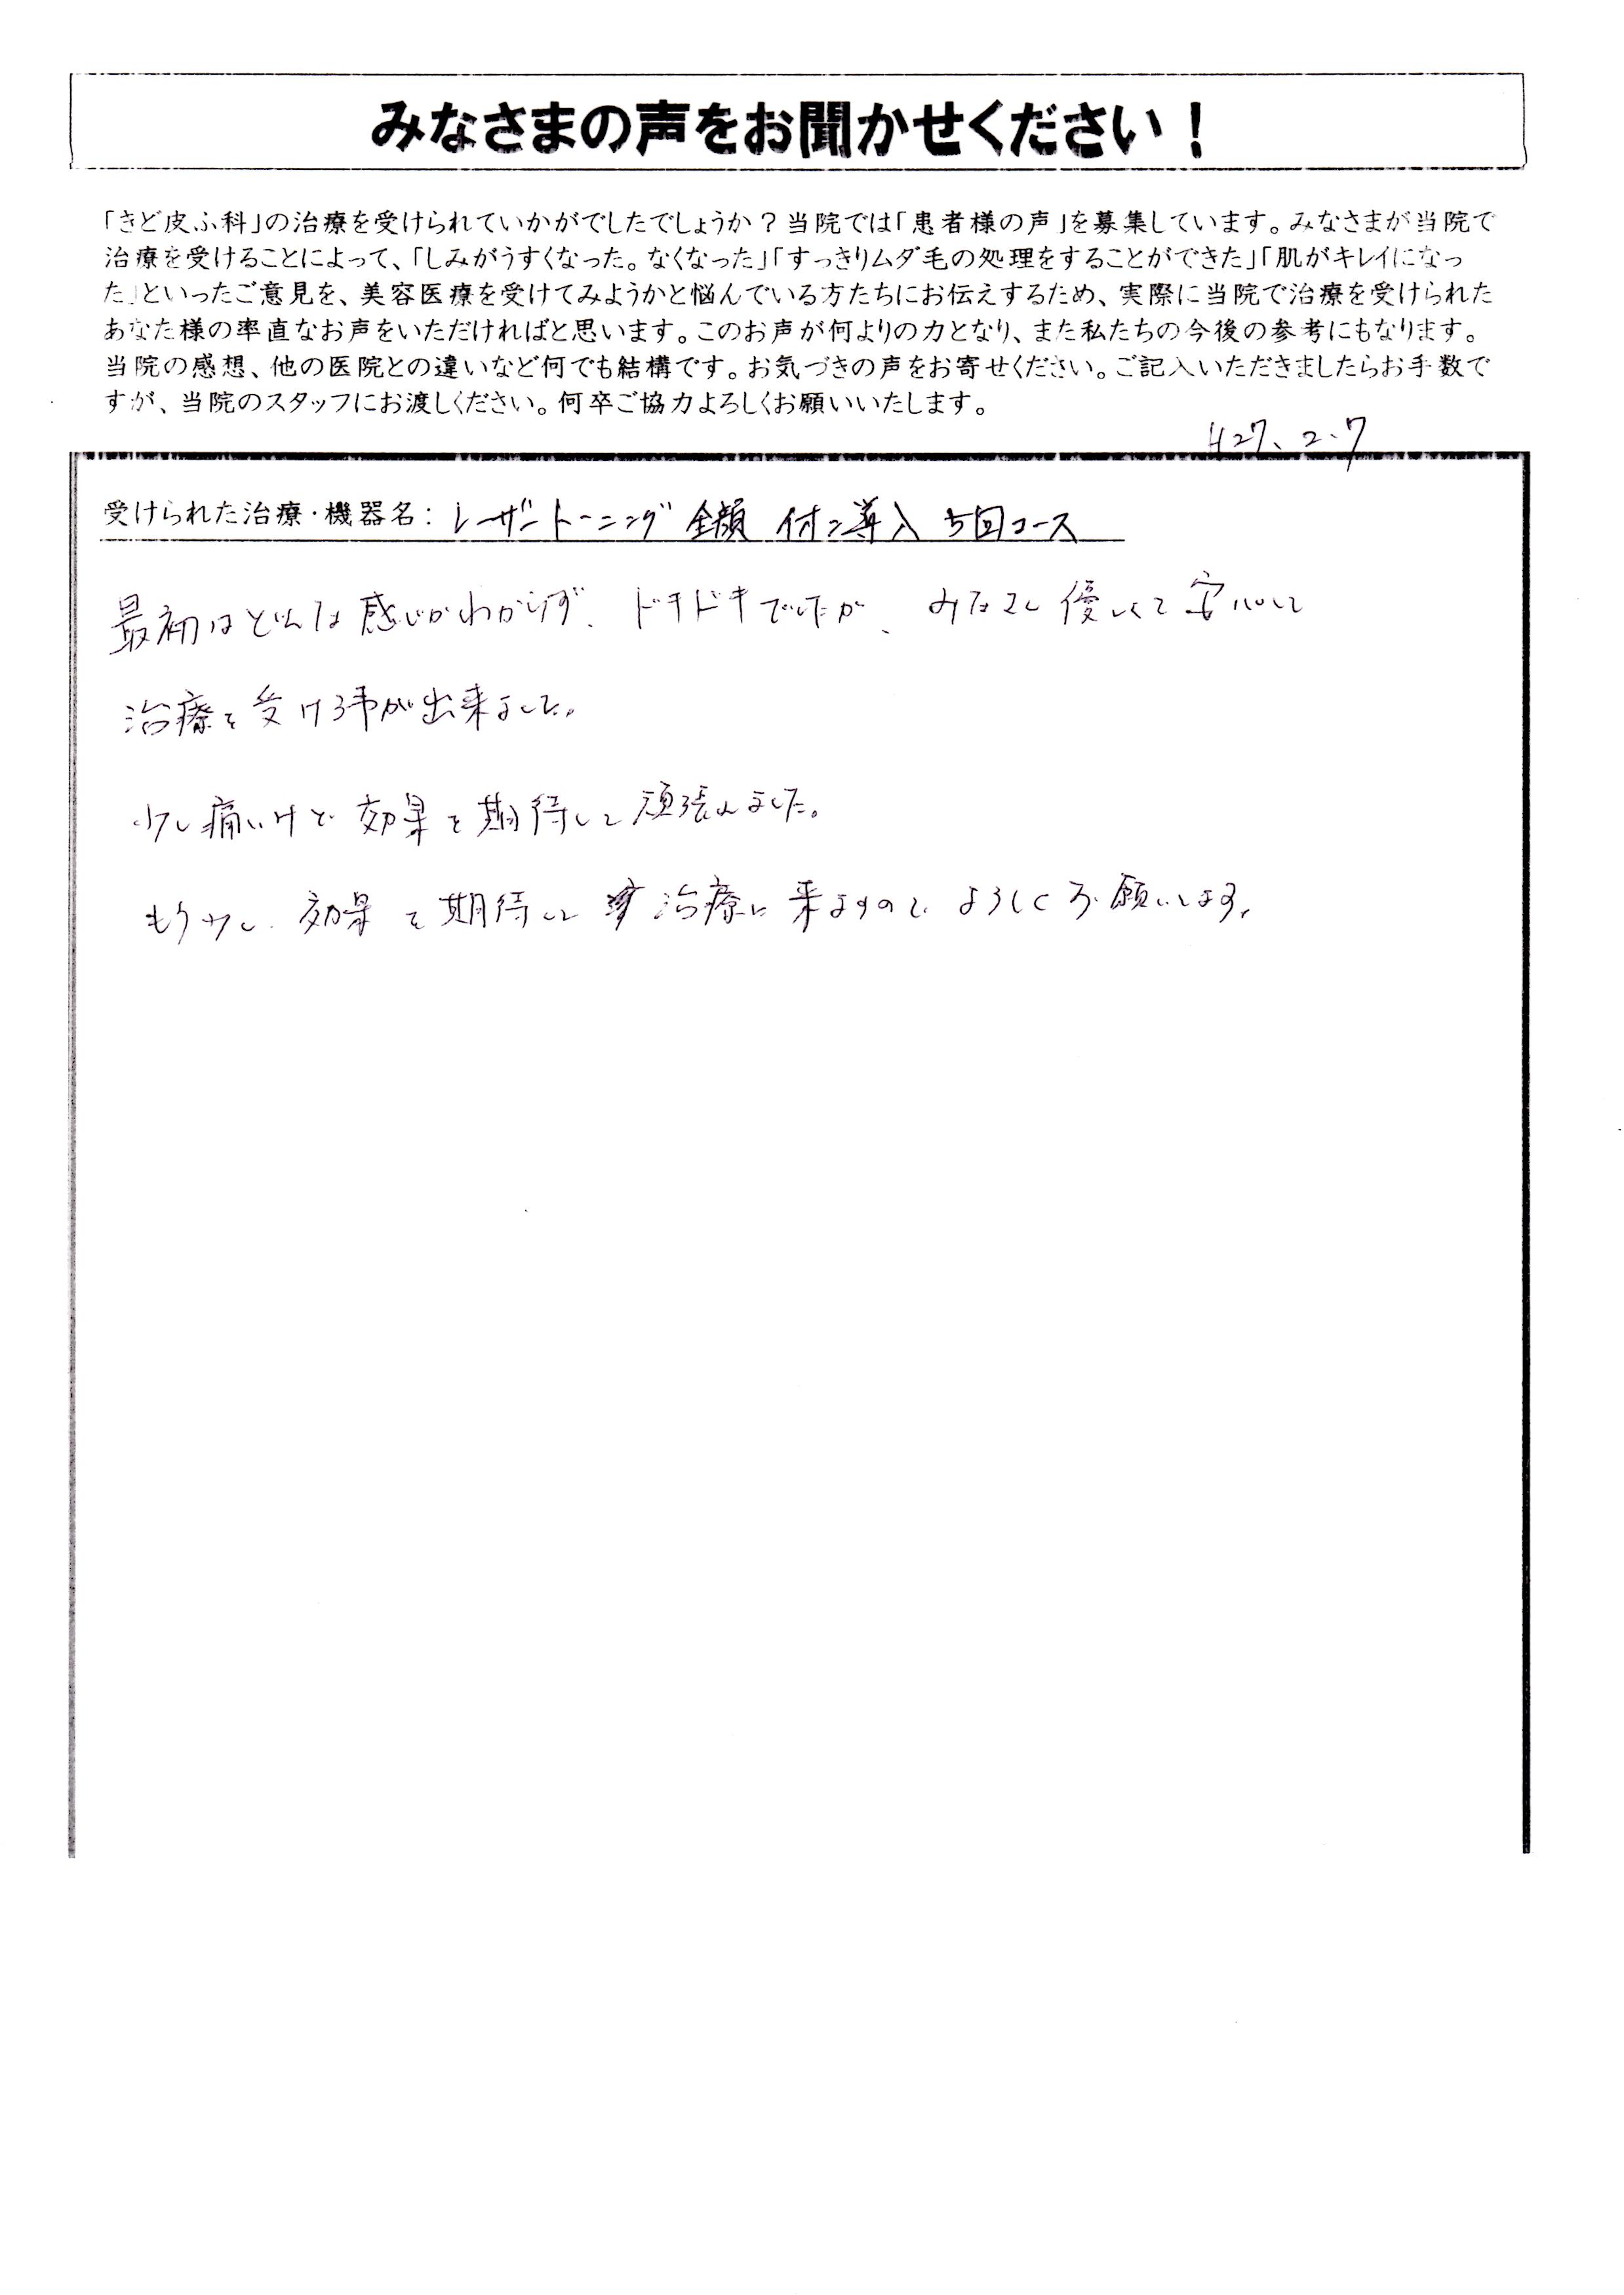 みなさまの声をお聞かせください！
「きど皮ふ科」の治療を受けられていかがでしたでしょうか？当院では「患者様の声」を募集しています。みなさまが当院で
治療を受けることによって、「しみがうすくなった。なくなった」「すっきりムダ毛の処理をすることができた」「肌がキレイになっ
た」といったご意見を、美容医療を受けてみようかと悩んでいる方たちにお伝えするため、実際に当院で治療を受けられた
あなた様の率直なお声をいただければと思います。このお声が何よりの力となり、また私たちの今後の参考にもなります。
当院の感想、他の医院との違いなど何でも結構です。お気づきの声をお寄せください。ご記入いただきましたらお手数で
すが、当院のスタッフにお渡しください。何卒ご協力よろしくお願いいたします。
H27.2.7
受けられた治療・機器名：レーザートーニング 全顔 イオン導入 5回コース
最初はどんな感じかわからず、ドキドキでしたが、みなさん優しくて安心して
治療を受ける事が出来ました。
少し痛いけど効果を期待して頑張れました。
もう少し効果を期待して治療に来ますので、よろしくお願いします。